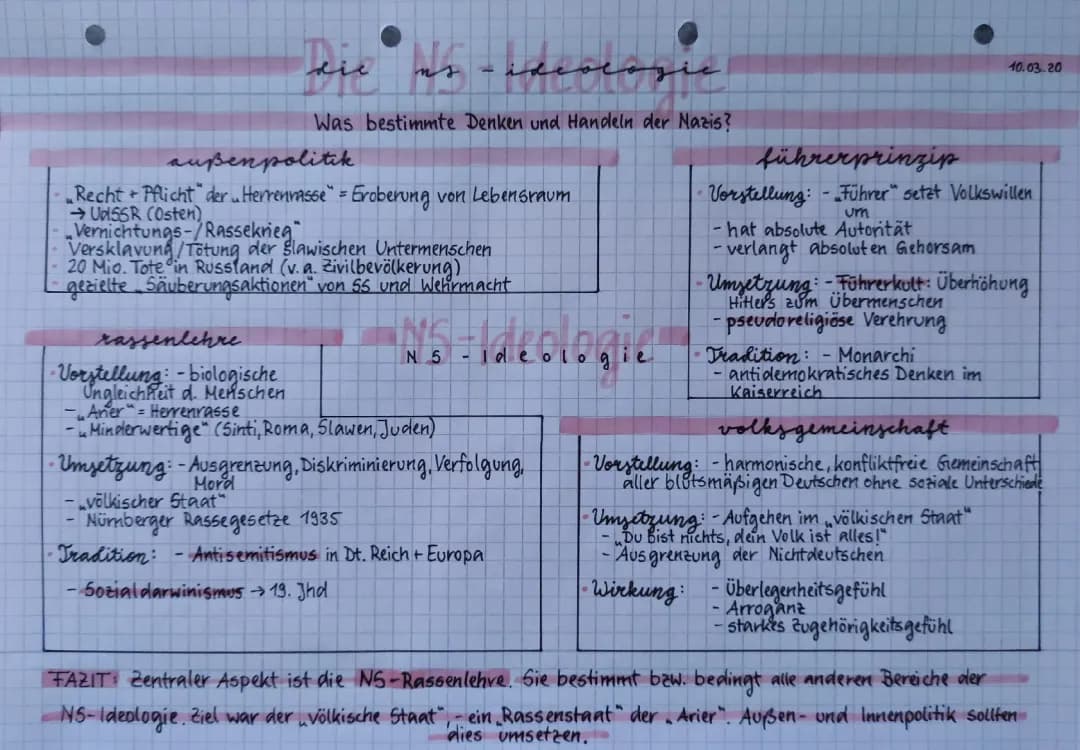 Die NS-Ideologie
die ns-ideologie
10.03.20
Was bestimmte Denken und Handeln der Nazis?
außenpolitik
- „Recht + Pflicht" der „Herrenrasse" = Eroberung von Lebensraum
→ UdSSR (Osten)
- „Vernichtungs-/Rassekrieg"
- Versklavung/Tötung der slawischen Untermenschen
- 20 Mio. Tote in Russland (v. a. Zivilbevölkerung)
- gezielte „Säuberungsaktionen" von SS und Wehrmacht
führerprinzip
- Vorstellung: - „Führer" setzt Volkswillen
um
- hat absolute Autorität
- verlangt absoluten Gehorsam
- Umsetzung: - Führerkult: Überhöhung
Hitlers zum Übermenschen
- pseudoreligiöse Verehrung
- Tradition: - Monarchi
- antidemokratisches Denken im
Kaiserreich
NS-Ideologie
NS-Ideologie
rassenlehre
- Vorstellung: - biologische
Ungleichheit d. Menschen
- „Arier" = Herrenrasse
- „Minderwertige" (Sinti, Roma, Slawen, Juden)
- Umsetzung: - Ausgrenzung, Diskriminierung, Verfolgung,
Mord
- „völkischer Staat"
- Nürnberger Rassegesetze 1935
- Tradition: - Antisemitismus in Dt. Reich + Europa
- Sozialdarwinismus → 19. Jhd
volksgemeinschaft
- Vorstellung: - harmonische, konfliktfreie Gemeinschaft
aller blutsmäßigen Deutschen ohne soziale Unterschiede
- Umsetzung: - Aufgehen im „völkischen Staat"
- „Du bist nichts, dein Volk ist alles!"
- Ausgrenzung der Nichtdeutschen
- Wirkung: - Überlegenheitsgefühl
- Arroganz
- starkes Zugehörigkeitsgefühl
FAZIT: Zentraler Aspekt ist die NS-Rassenlehre. Sie bestimmt bzw. bedingt alle anderen Bereiche der
NS-Ideologie. Ziel war der „völkische Staat", - ein „Rassenstaat" der „Arier". Außen- und Innenpolitik sollten
dies umsetzen.